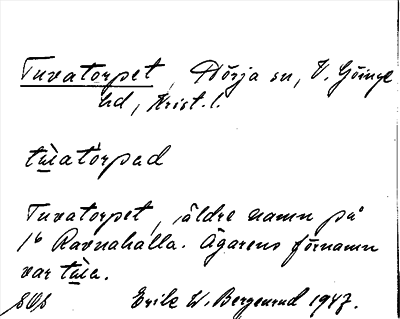 Tuvatorpet, Nörja sn, V. Göinge
hd, Krist. l.
tùatòrpad
Tuvatorpet, äldre namn på
1⁶ Ravnahalla. Ägarens förnamn
var tùa.
Erik W. Bergenrud 1947.